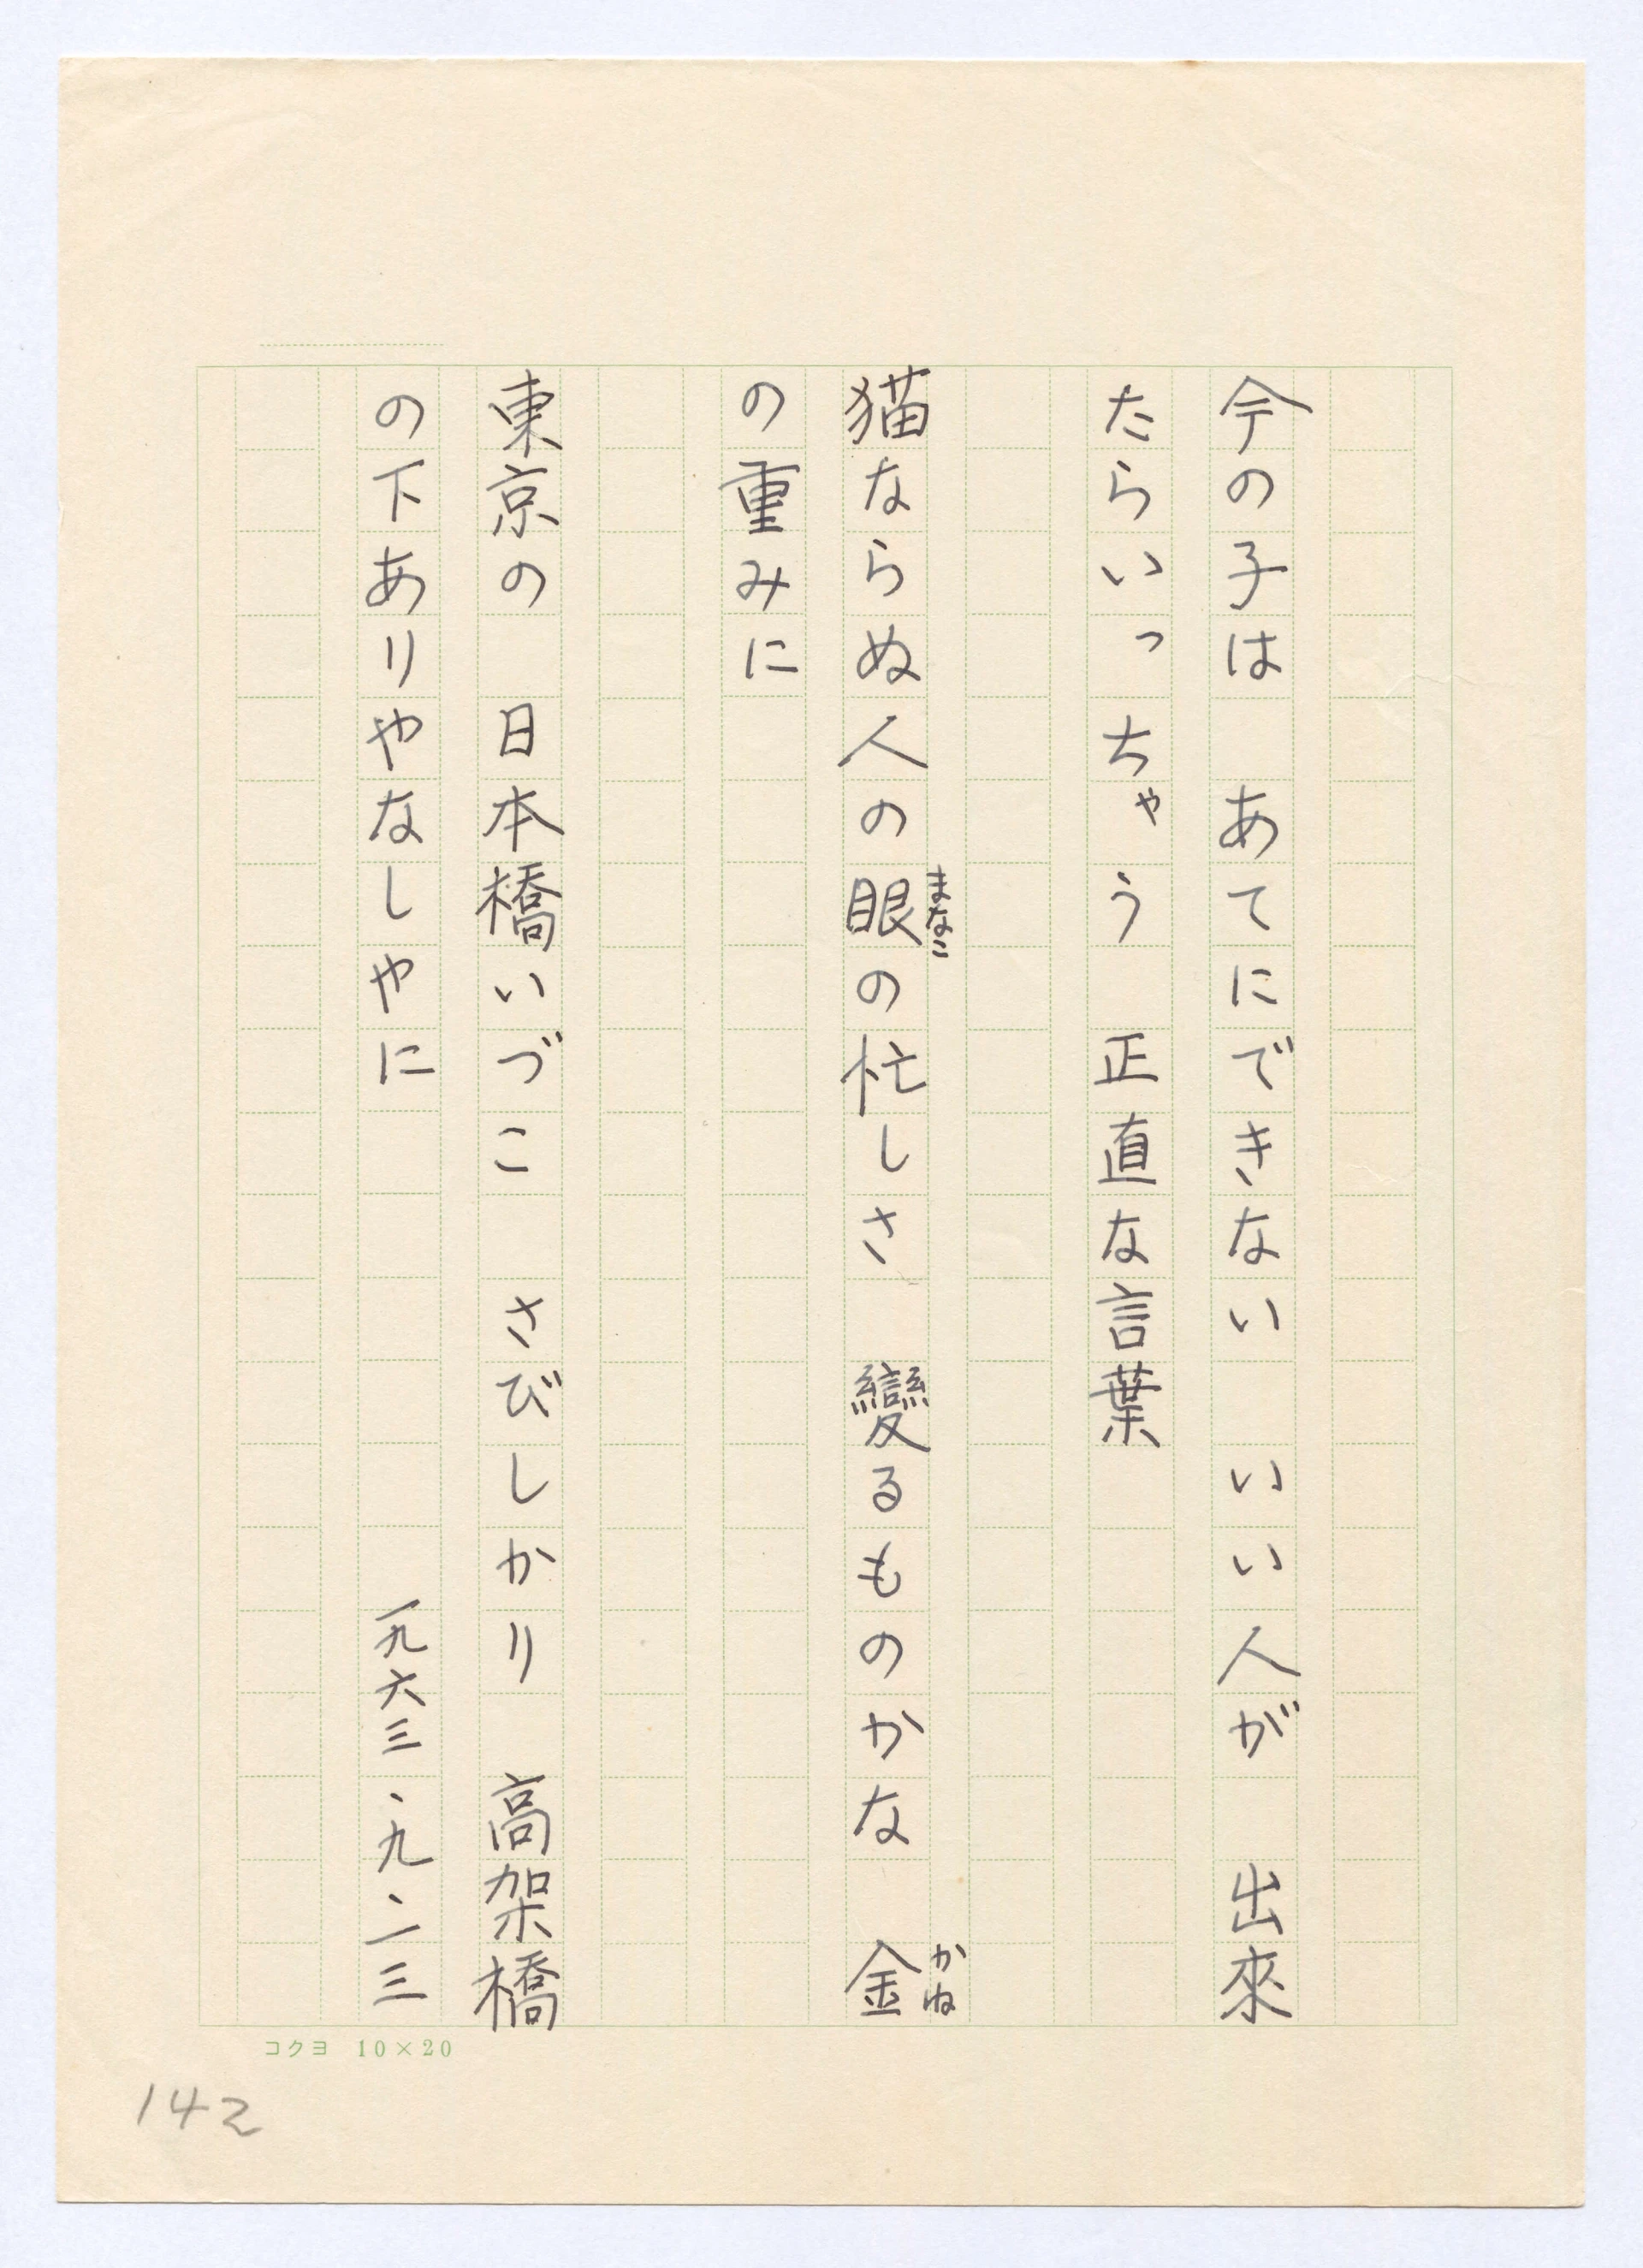 今の子は　あてにできない　いい人が　出來
たらいっちゃう　正直な言葉
猫ならぬ人の眼の忙しさ　變るものかな　金
まなこ
かね
の重みに
東京の　日本橋いづこ　さびしかり　高架橋
の下ありやなしやに　一九六三・九・一三
コクヨ 10×20
142